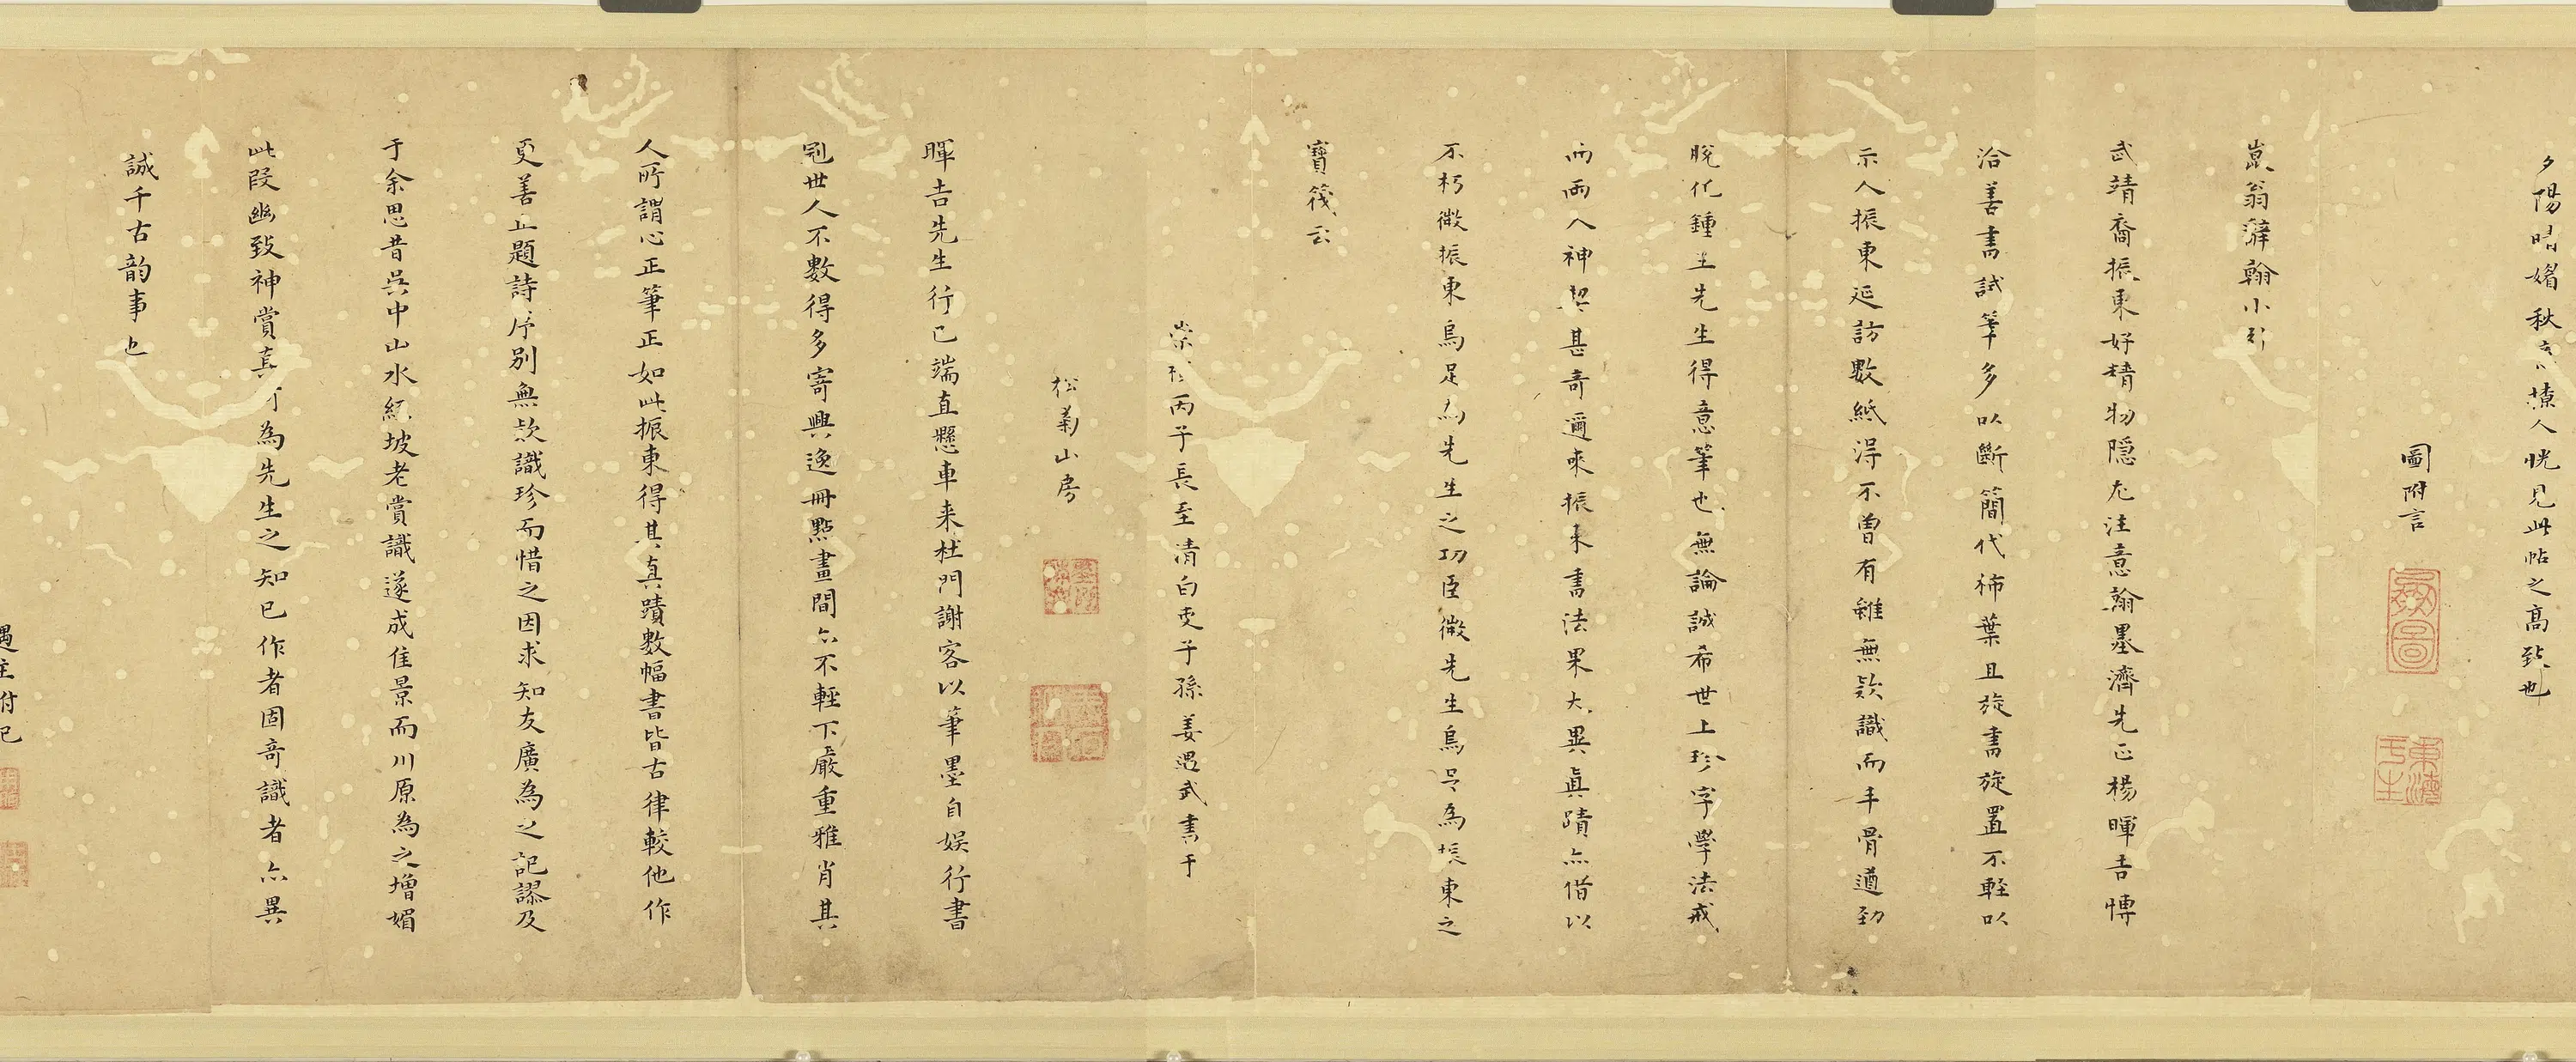 夕陽晴媚秋
人恍見此帖之高致也
圖附言
崑翁
翰小引
武靖裔振東好精物隱尤注意翰墨濟先正楊暉吉博
洽善書試筆多以斷簡代柿葉且旋書旋置不輕以
示人振東延訪數紙得不曾有雖無款識而丰骨遒勁
脫化鍾王先生得意筆也無論誠希世上珍字學法戒
而兩入神契甚奇邇來振東書法果大異真蹟亦借以
不朽微振東烏足為先生之功臣微先生烏足為振東之
寶筏云
崇禎丙子長至清白吏子孫姜遇武書于
松菊山房
暉吉先生行已端直懸車來杜門謝客以筆墨自娱行書
冠世人不數得多寄興逸冊點畫間亦不輕下嚴重雅肖其
人所謂心正筆正如此振東得其真蹟數幅書皆古律較他作
更善止題詩序別無款識珍而惜之因求知友廣為之記謬及
于余思昔吳中山水經坡老賞識遂成佳景而川原為之增媚
此段幽致神賞真可為先生之知已作者固奇識者亦異
誠千古韵事也